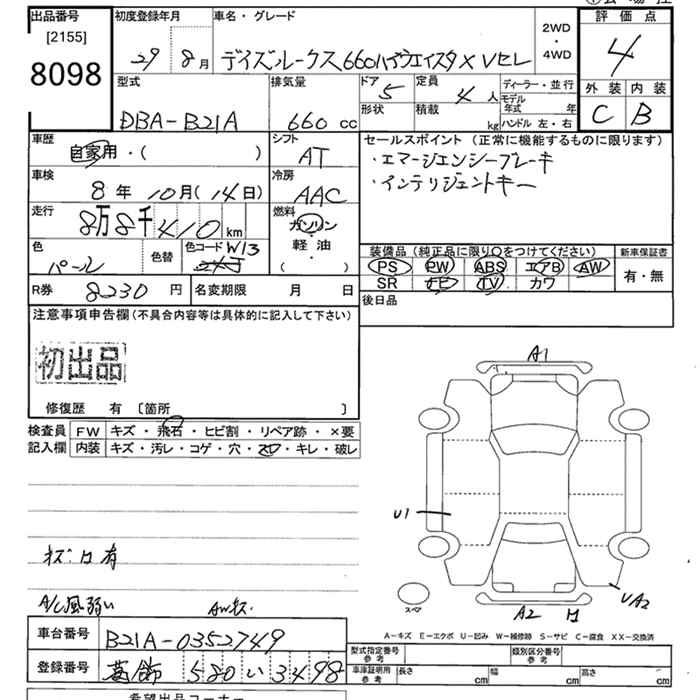 出品番号 初度登録年月 車名・グレード 評価点
[2155] 8098
29年 8月 デイズルークス660ハイウェイスタX Vセレ 2WD・4WD 4
外装 内装
C B
型式 排気量 ドア 定員 ディーラー・並行
DBA-B21A 660cc 5 4人 モデル年式 年
形状 積載 kg ハンドル 左・右
車歴 シフト セールスポイント(正常に機能するものに限ります)
自家用・( ) AT ・エマージェンシーブレーキ
車検 冷房 ・インテリジェントキー
8年10月(14日) AAC
走行 8万8千410km 燃料 ガソリン・軽油・( )
色 パール 色替 色コード W13
装備品(純正品に限り○をつけてください) 新車保証書
PS PW ABS エアB AW 有・無
SR ナビ TV カワ
R券 8230円 名変期限 月 日 後日品
注意事項申告欄(不具合内容等は具体的に記入して下さい)
初出品
修復歴 有 [箇所 ]
検査員 FW キズ・飛石・ヒビ割・リペア跡・×要
記入欄 内装 キズ・汚レ・コゲ・穴・スレ・キレ・破レ
A1
U1
キズ凹有
A/C風弱い AWキズ
スペア
A2
UA2
A-キズ E-エクボ U-凹み W-補修跡 S-サビ C-腐食 XX-交換済
車台番号 B21A-0352749 型式指定番号 参考 類別区分番号 参考
登録番号 葛飾 580 い 3498 車庫証明用 参考 長さ cm 幅 cm 高さ cm
希望出品コーナー